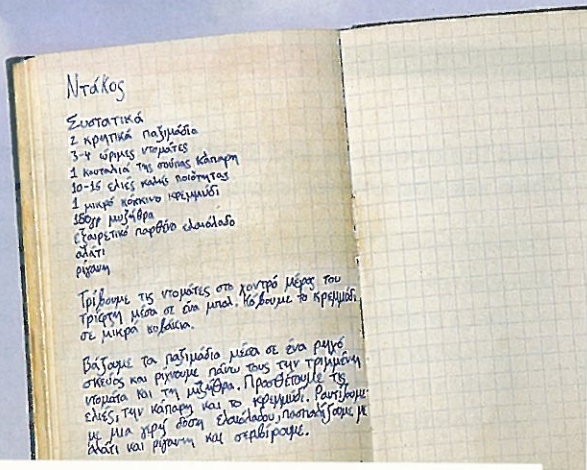 Ντάκος
Συστατικά
2 κρητικά παξιμάδια
3-4 ώριμες ντομάτες
1 κουταλιά της σούπας κάπαρη
10-15 ελιές καλής ποιότητας
1 μικρό κόκκινο κρεμμύδι
150γρ μυζήθρα
εξαιρετικό παρθένο ελαιόλαδο
αλάτι
ρίγανη
Τρίβουμε τις ντομάτες στο χοντρό μέρος του
τρίφτη μέσα σε ένα μπολ. Κόβουμε το κρεμμύδι
σε μικρά κυβάκια.
Βάζουμε τα παξιμάδια μέσα σε ένα ρηχό
σκεύος και ρίχνουμε πάνω τους την τριμμένη
ντομάτα και τη μυζήθρα. Προσθέτουμε τις
ελιές, την κάπαρη και το κρεμμύδι. Ραντίζουμε
με μια γερή δόση ελαιόλαδου, πασπαλίζουμε με
αλάτι και ρίγανη και σερβίρουμε.